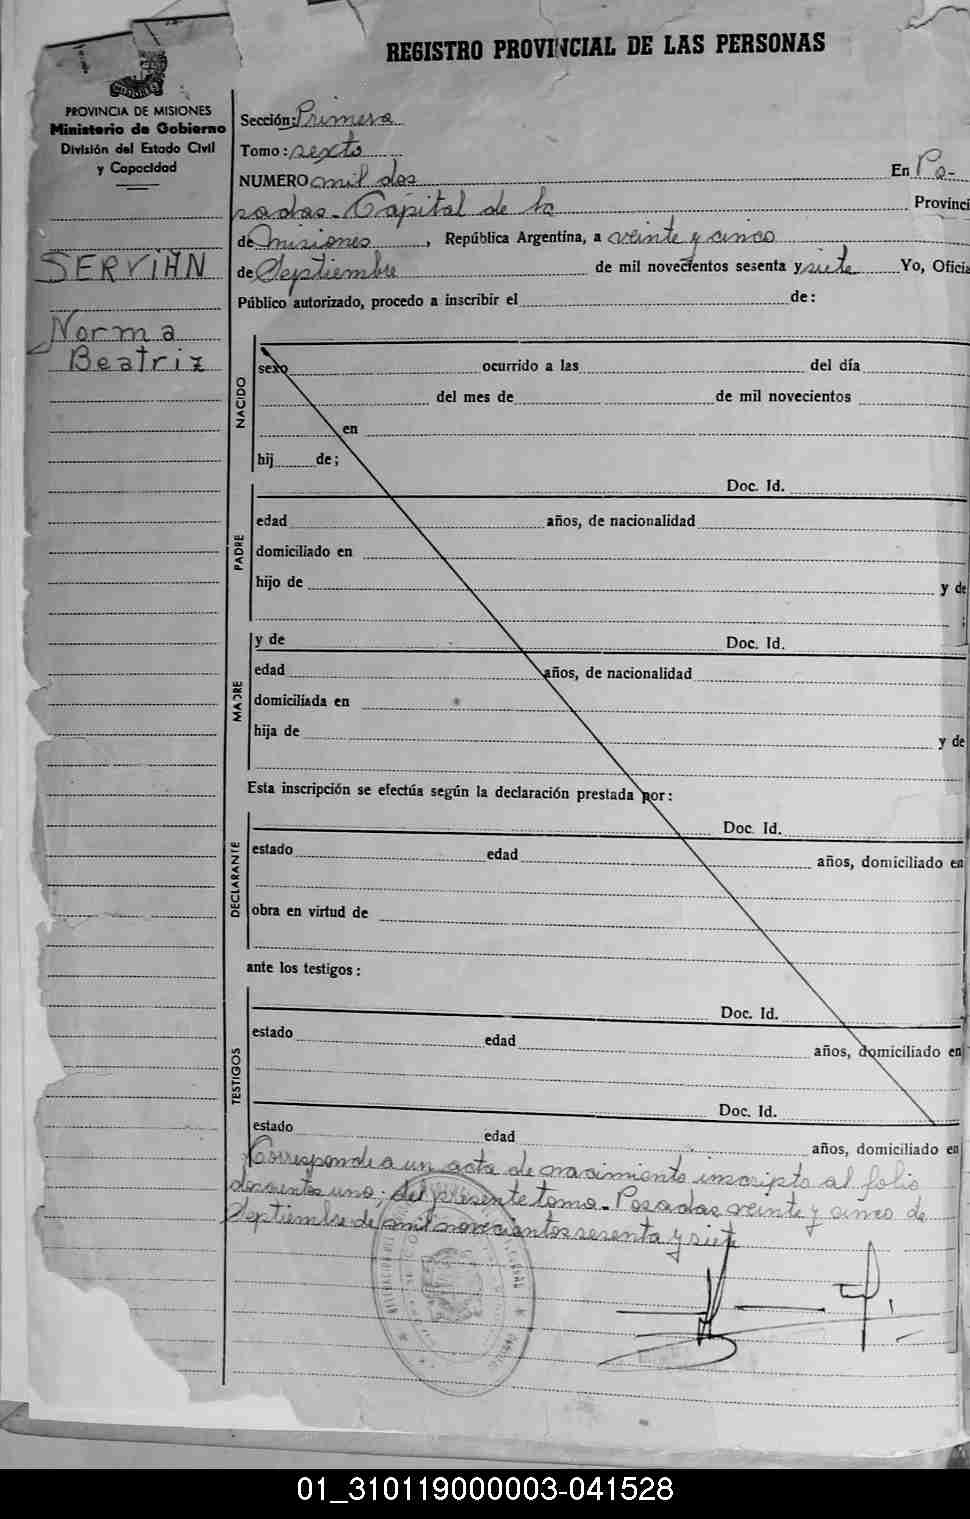 REGISTRO PROVINCIAL DE LAS PERSONAS
PROVINCIA DE MISIONES
Ministerio de Gobierno
División del Estado Civil
y Capacidad
SERVIAN
Norma
Beatriz
Sección: Primera
Tomo: sexto
NUMERO mil dos En Po-
sadas - Capital de la Provinci
de Misiones, República Argentina, a veinte y cinco
de Septiembre de mil novecientos sesenta y siete Yo, Oficia
Público autorizado, procedo a inscribir el de:
NACIDO
sexo ocurrido a las del día
del mes de de mil novecientos
en
hij de;
PADRE
Doc. Id.
edad años, de nacionalidad
domiciliado en
hijo de y de
;
MADRE
y de Doc. Id.
edad años, de nacionalidad
domiciliada en
hija de y de
Esta inscripción se efectúa según la declaración prestada por:
DECLARANTE
Doc. Id.
estado edad años, domiciliado en
obra en virtud de
ante los testigos:
TESTIGOS
Doc. Id.
estado edad años, domiciliado en
Doc. Id.
estado edad años, domiciliado en
Corresponde a un acta de nacimiento inscripto al folio
doscientos uno; del presente tomo - Posadas veinte y cinco de
Septiembre de mil novecientos sesenta y siete
01_310119000003-041528